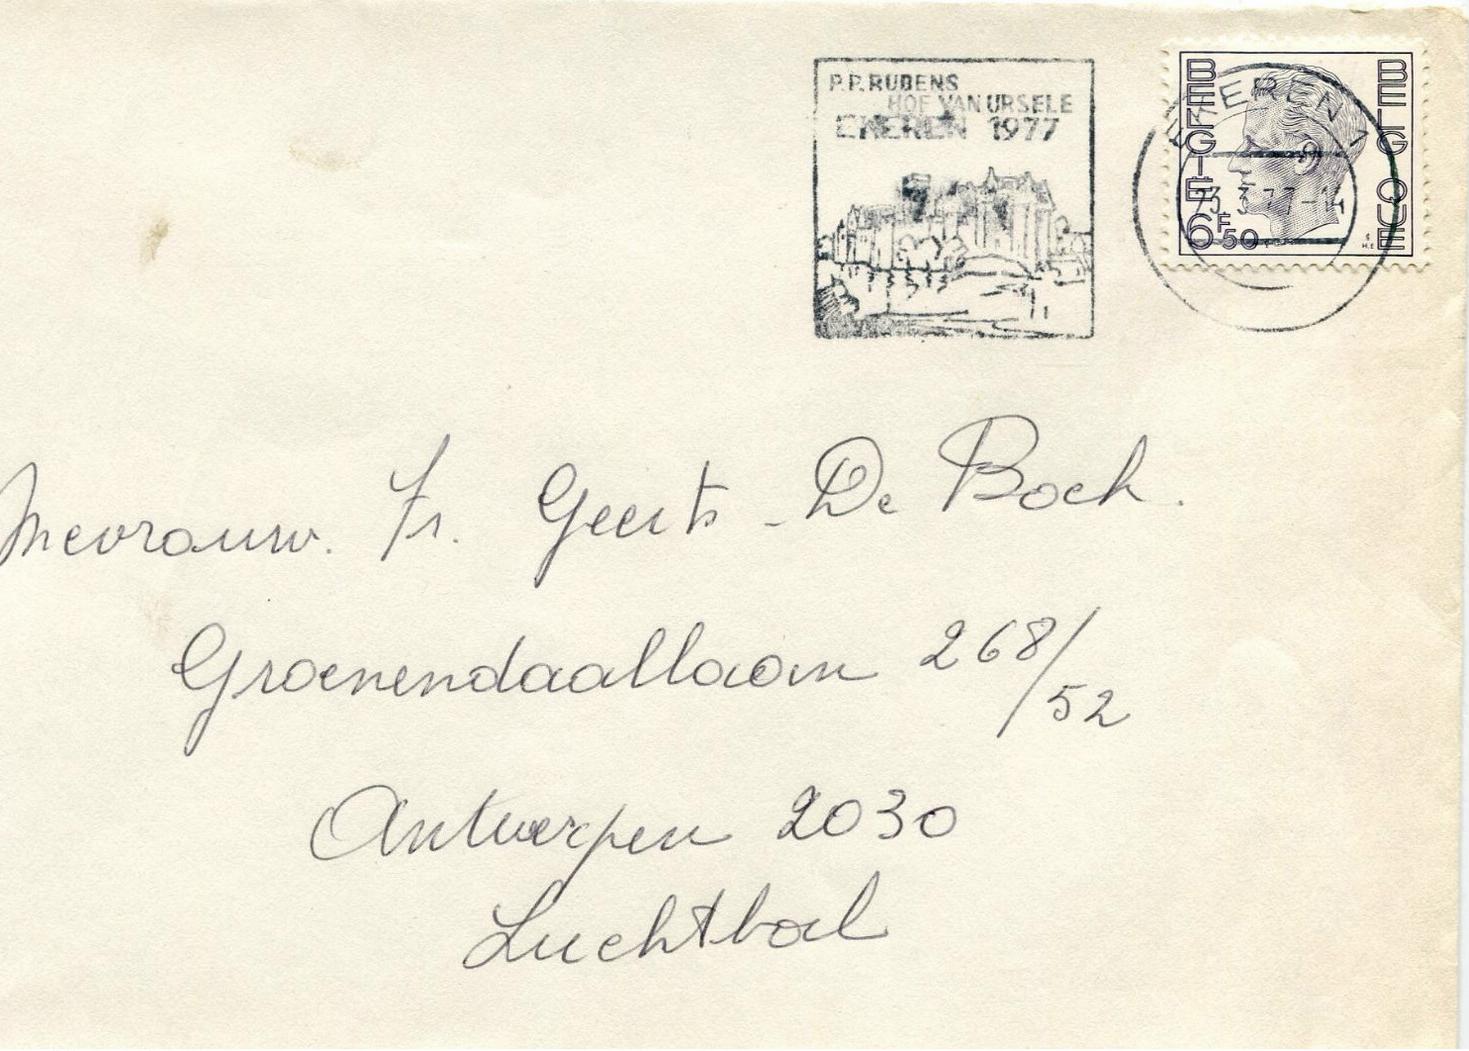 P.P. RUBENS
HOF VAN URSELE
EKEREN 1977
EKEREN 1
3-77-14
BELGIE
BELGIQUE
6F50
Mevrouw. Fr. Geerts - De Boeh.
Groenendaallaan 268/52
Antwerpen 2030
Luchtbal